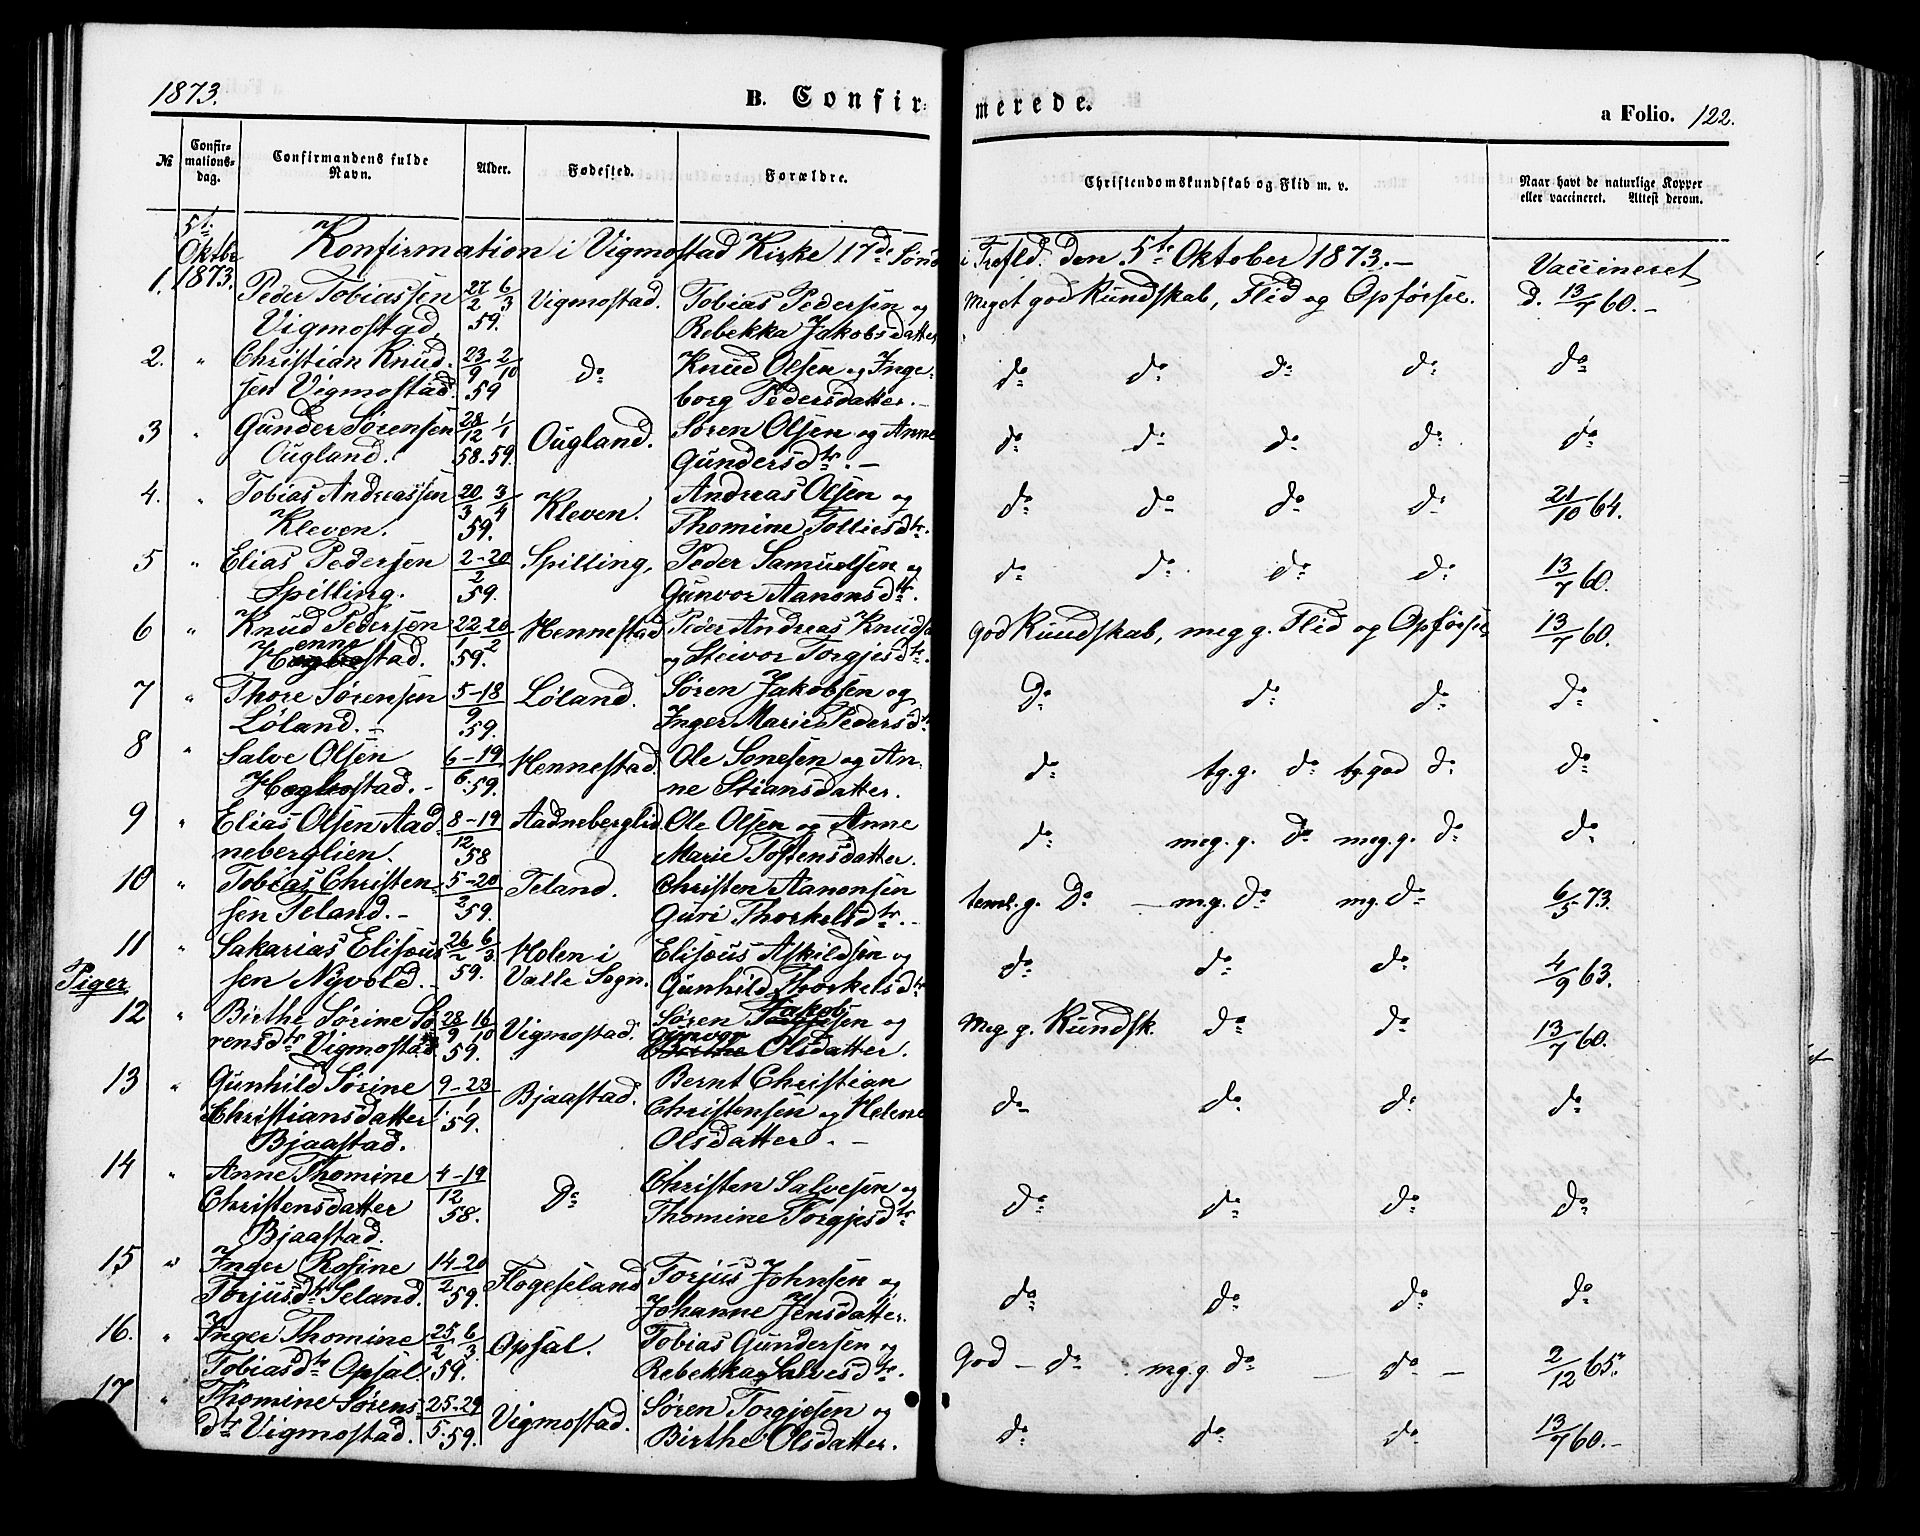 1873.
B. Confirmerede.
a Folio. 122.
№
Confirmationsdag.
Confirmandens fulde Navn.
Alder.
Fødested.
Forældre.
Christendomskundskab og Flid m. v.
Naar havt de naturlige Kopper eller vaccineret. Attest derom.
5te Oktbr 1873.
Konfirmation i Vigmostad Kirke 17de Sønd. i Trefld. den 5te Oktober 1873. —
Vaccineret
1. Peder Tobiassen 27/2 6/3 Vigmostad. Tobias Pedersen og Meget god Kundskab, Flid og Opførsel. d. 13/7 60. —
Vigmostad 59. Rebekka Jakobsdatter
2. " Christian Knud- 23/9 2/10 do Knud Olsen og Inge- do do do do do
sen Vigmostad. 59 borg Pedersdatter. —
3 " Gunder Sørensen 28/12 1/1 Ougland. Søren Olsen og Anne do do do do do
Ougland. 58-59. Gundersdtr. —
4. " Tobias Andreassen 20/3 3/4 Kleven. Andreas Olsen og do do do do 21/10 64.
Kleven. 59. Thomine Tolliesdtr.
5 " Elias Pedersen 2-20/2 Spilling, Peder Samuelsen og do do do do 13/7 60.
Spilling. 59. Gunvor Aanonsdtr.
6 " Knud Pedersen 22/1 20/2 Hennestad Peder Andreas Knuds. God Kundskab, meg g. Flid og Opførsel, 13/7 60.
Hennestad. 59. og Stevor Torgjesdtr.
7 " Thore Sørensen 5-18/9 Løland. Søren Jakobsen og Do do do do
Løland. — 59. Inger Marie Pedersdtr
8 " Salve Olsen 6-19/6 Hennestad. Ole Sonesen og An- do tg.g. do tg.god do do
Hegbostad. — 59. ne Stiansdatter.
9 " Elias Olsen Aad- 8-19/12 Aadneberglid Ole Olsen og Anne do meg. g. do meg.g. do do
neberglien. 58 Marie Tostensdatter.
10 " Tobias Christen- 5-20/2 Teland. Christen Aanonsen teml.g. Do — m.g. do mg. do 6/5 73.
sen Teland. — 59. Guri Thorkelsdtr. —
11 " Sakarias Elisæus 26/2 6/3 Holen i Elisæus Askildsen og do do do 4/9 63.
sen Nyvold. 59. Valle Sogn. Gunhild Thorkelsdtr
Piger
12 " Birthe Sørine Sø 28/9 16/10 Vigmostad. Søren Jakobsen og Meg g. Kundsk. do do 13/7 60.
rensdtr Vigmostad 59. Gunvor Olsdatter.
13 " Gunhild Sørine 9-23 Bjaastad. Bernt Christian do do do do
Christiansdatter 1 1 59. Christensen og Helene
Bjaastad. Olsdatter. —
14 " Anne Thomine 4-19/12 Do Christen Salvesen og do do do do
Christensdatter 58. Thomine Torgjesdtr
Bjaastad.
15 " Inger Rosine 14-20/2 Flogeseland Torjus Johnsen og do do do do
Torjusdtr Seland. 59. Johanne Jensdatter.
16. " Inger Thomine 25/2 6/3 Opsal. Tobias Gundersen og God — do mg.g. do — do — 2/12 65.
Tobiasdtr Opsal 59. Rebekka Salvesdtr.
17 " Thomine Sørens 25-29/5 Vigmostad. Søren Torgjesen og do do do 13/7 60. —
dtr Vigmostad. 59. Birthe Olsdatter.